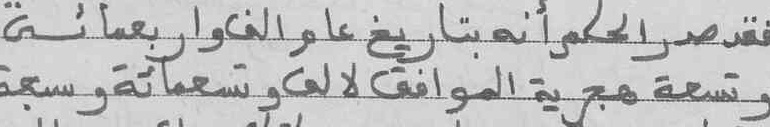 فقد صدر الحكم أنه بتاريخ عام ألف وأربعمائة
وتسعة هجرية الموافق لألف وتسعمائة وسبعة